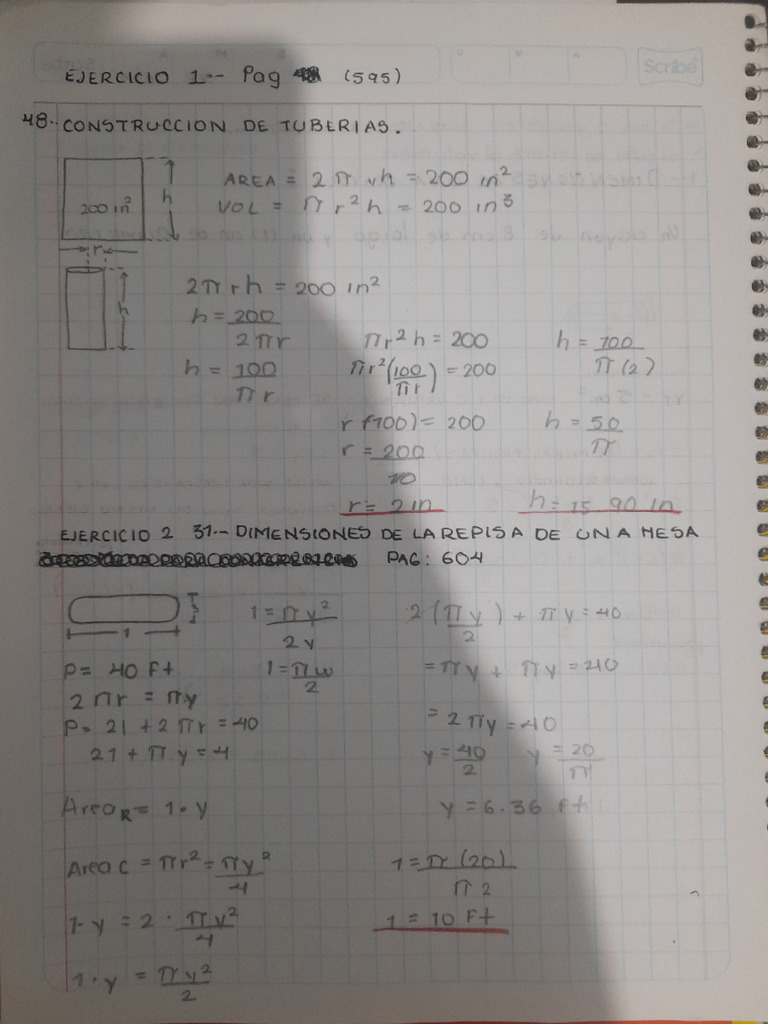 Scribe
EJERCICIO 1.- Pag (595)
48.- CONSTRUCCION DE TUBERIAS.
200 in²
h
r
h
AREA = 2 π r h = 200 in²
VOL = π r² h = 200 in³
2 π r h = 200 in²
h = 200 / 2 π r
h = 100 / π r
π r² h = 200
π r² (100 / π r) = 200
r (100) = 200
r = 200 / 10
r = 2 in
h = 100 / π (2)
h = 50 / π
h = 15.90 in
EJERCICIO 2 31.- DIMENSIONES DE LA REPISA DE UNA MESA
PAG: 604
1
P = 40 Ft
2 π r = π y
P = 21 + 2 π r = 40
21 + π y = 4
Area R = 1 · y
Area C = π r² = π y² / 4
1 · y = 2 · π y² / 4
1 · y = π y² / 2
1 = π y² / 2 y
1 = π w / 2
2 (π y / 2) + π y = 40
= π y + π y = 40
= 2 π y = 40
y = 40 / 2 y = 20 / π
y = 6.36 Ft
1 = π (20) / π 2
1 = 10 Ft